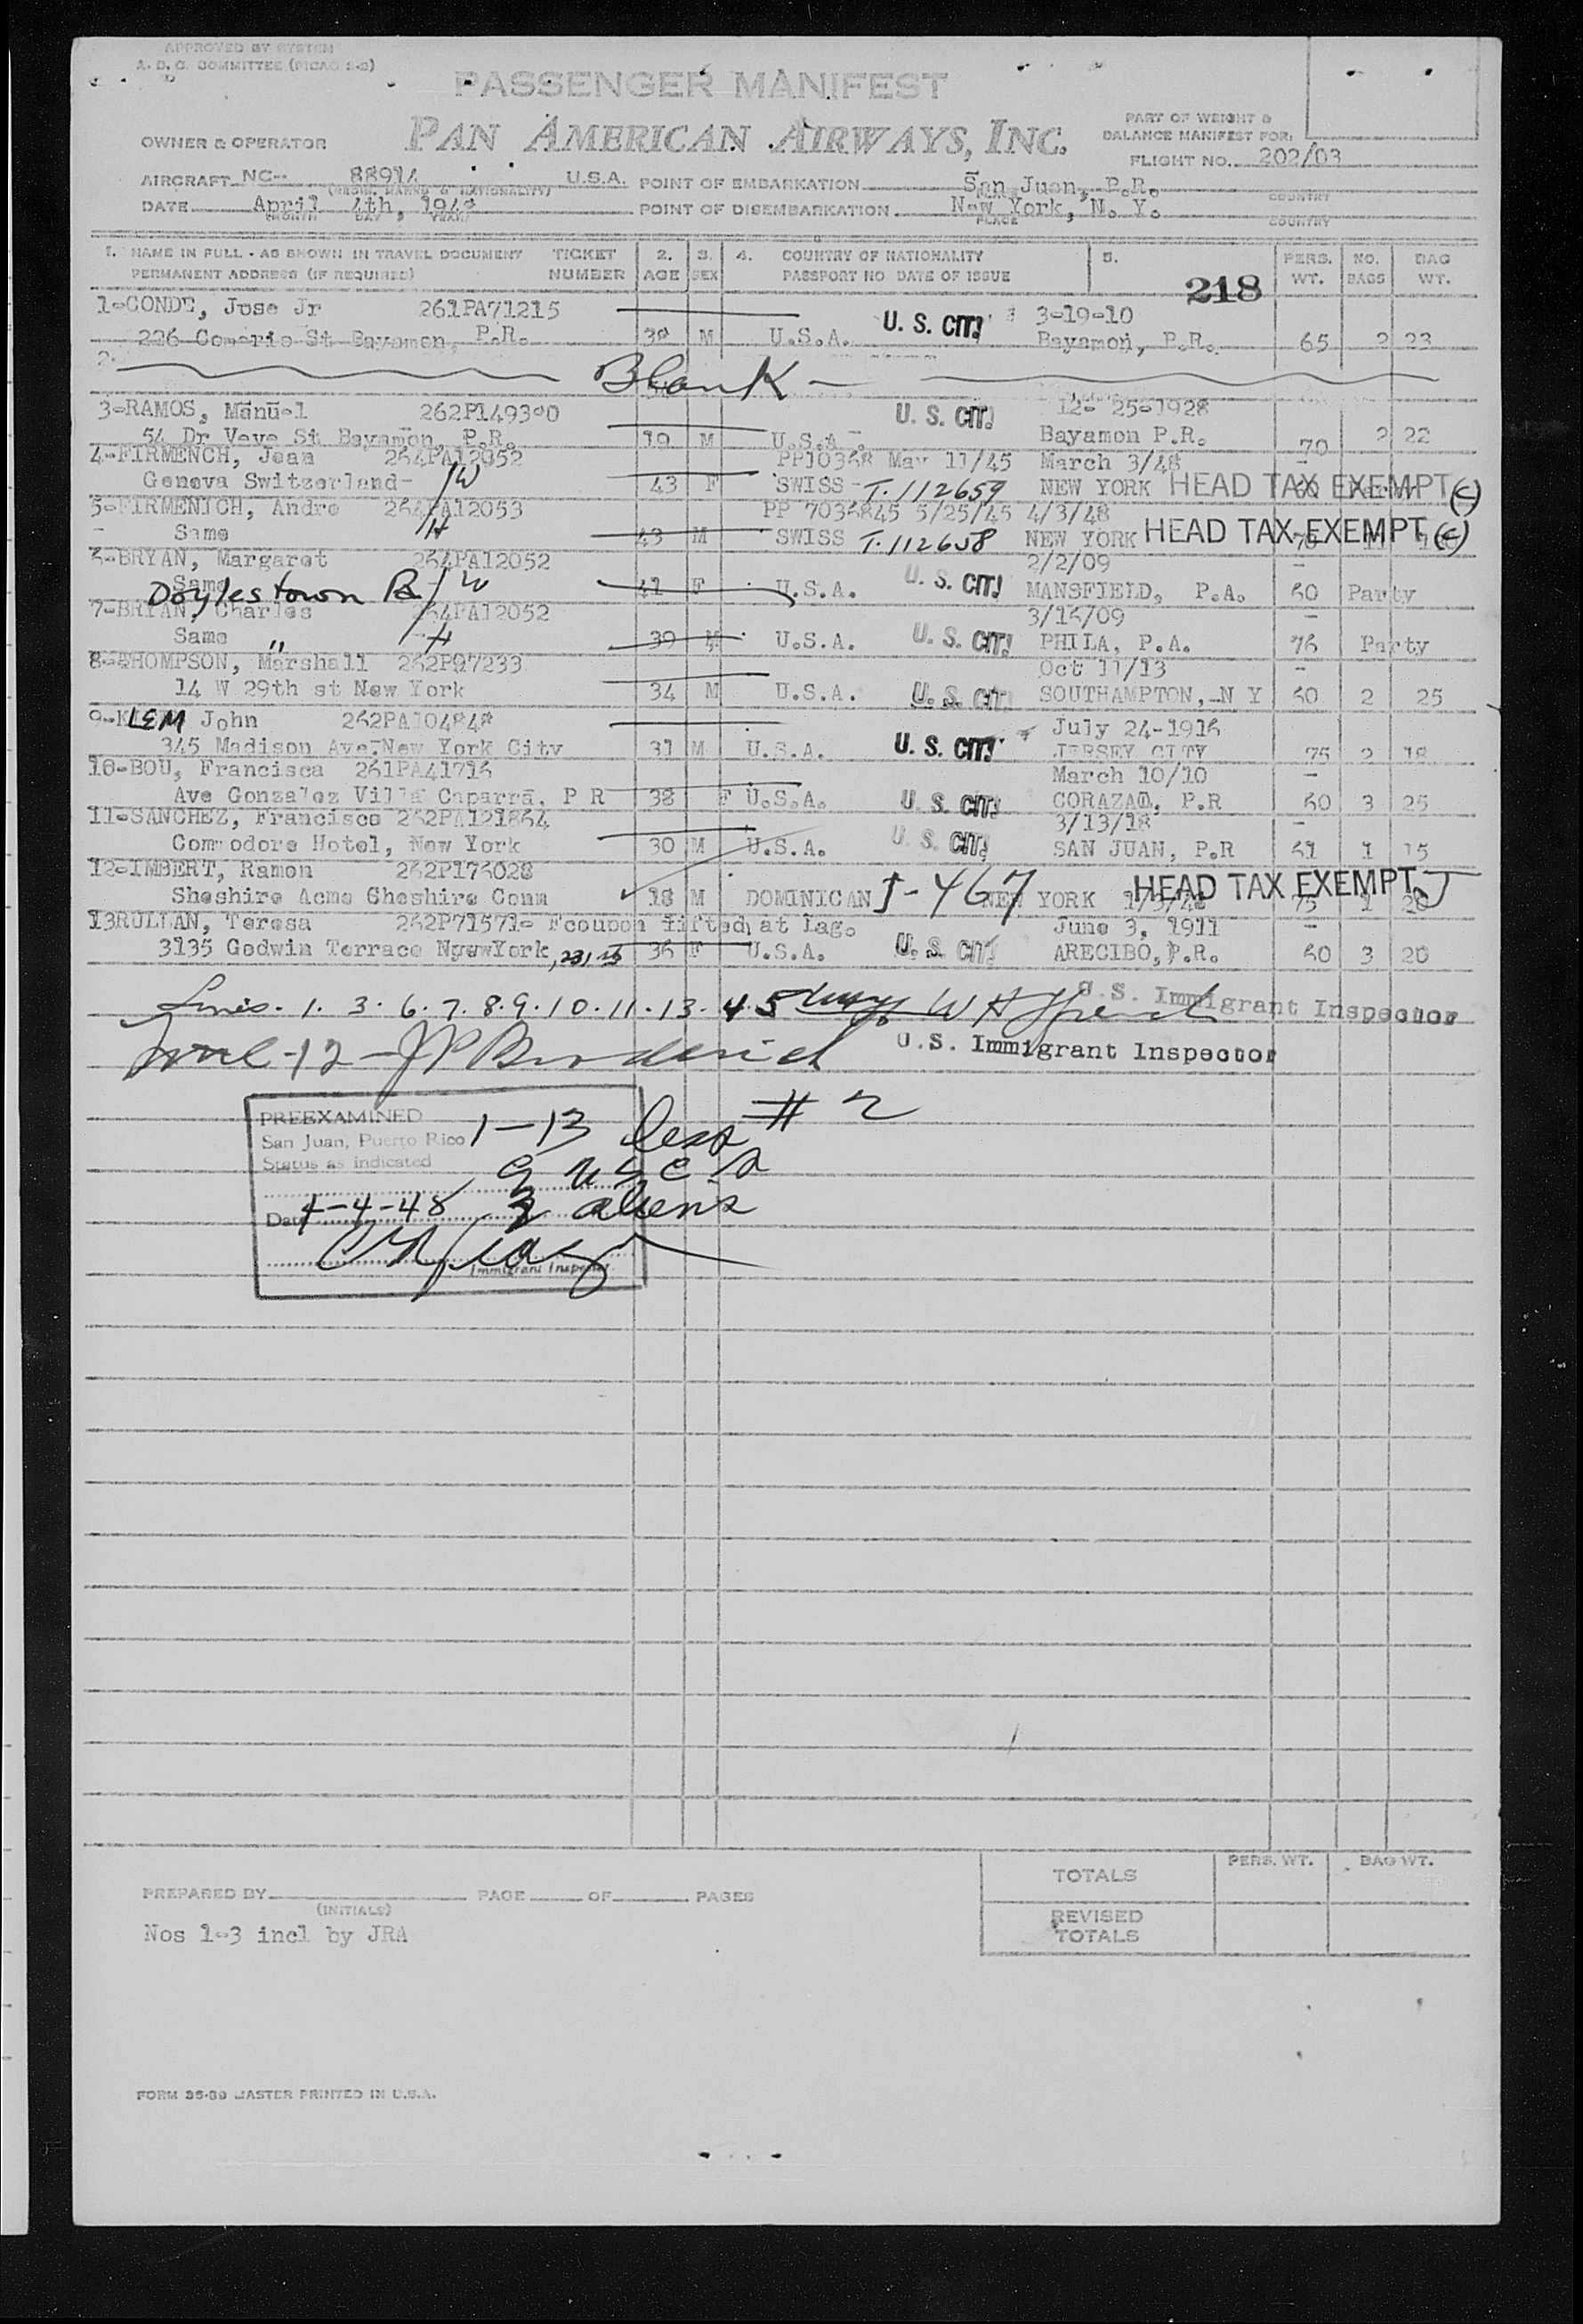 APPROVED BY SYSTEM
A. D. C. COMMITTEE (PICAO 2-3)
PASSENGER MANIFEST
PAN AMERICAN AIRWAYS, INC.
PART OF WEIGHT &
BALANCE MANIFEST FOR:
OWNER & OPERATOR
FLIGHT NO. 202/03
AIRCRAFT NC-- 88914 U.S.A. POINT OF EMBARKATION San Juan, P.R.
COUNTRY
DATE April 4th, 194 POINT OF DISEMBARKATION New York, N. Y.
PLACE COUNTRY
1. NAME IN FULL - AS SHOWN IN TRAVEL DOCUMENT TICKET 2. 3. 4. COUNTRY OF NATIONALITY 5. PERS. NO. BAG
PERMANENT ADDRESS (IF REQUIRED) NUMBER AGE SEX PASSPORT NO DATE OF ISSUE 218 WT. BAGS WT.
1-CONDE, Jose Jr 261PA71215 U. S. CIT! 3-19-10
226 Comerio St Bayamon, P.R. M U.S.A. Bayamon, P.R. 65 2 23
2- Blank
3-RAMOS, Manuel U. S. CIT! 12- 25-1928
54 Dr Veve St Bayamon, P.R. 19 M U.S.A. Bayamon P.R. 70 2 22
4-FIRMENCH, Jean 264PA12052 PP10368 May 11/45 March 3/48
Geneva Switzerland- /W 43 F SWISS - T.112659 NEW YORK HEAD TAX EXEMPT (c)
5-FIRMENICH, Andre 264PA12053 PP 7036845 5/25/45 4/3/48
Same /H 43 M SWISS T.112658 NEW YORK HEAD TAX EXEMPT (c)
6-BRYAN, Margaret 264PA12052 2/2/09
Same Doylestown Pa /W 41 F U.S.A. U. S. CIT! MANSFIELD, P.A. 60 Party
7-BRYAN, Charles 264PA12052 3/16/09
Same " /H 39 M U.S.A. U. S. CIT! PHILA, P.A. 76 Party
8-THOMPSON, Marshall 262PA7233 Oct 11/13
14 W 29th st New York 34 M U.S.A. U. S. CIT! SOUTHAMPTON, N Y 60 2 25
9-KLEM John 262PA10484 July 24-1916
345 Madison Ave, New York City 31 M U.S.A. U. S. CIT! JERSEY CITY 75 2 18
10-BOU, Francisca 261PA41716 March 10/10
Ave Gonzalez Villa Caparra, P R 38 F U.S.A. U. S. CIT! CORAZAL, P.R 60 3 25
11-SANCHEZ, Francisco 262PA121864 3/13/18
Commodore Hotel, New York 30 M U.S.A. U. S. CIT! SAN JUAN, P.R 61 1 15
12-IMBERT, Ramon 262P176028
Sheshire Acme Cheshire Conn 18 M DOMINICAN J-467 NEW YORK HEAD TAX EXEMPT J 75 1 20
13RULLAN, Teresa 262P71571- Fcoupon lifted at Lag. June 3, 1911
3135 Godwin Terrace NewYork, 36 F U.S.A. U. S. CIT! ARECIBO, P.R. 60 3 20
Lines. 1. 3. 6. 7. 8. 9. 10. 11. 13. 4 5 U.S. Immigrant Inspector
Line-12- U.S. Immigrant Inspector
PREEXAMINED
San Juan, Puerto Rico 1-13 less # 2
Status as indicated 9 USCS
Date 4-4-48 3 aliens
Immigrant Inspector
TOTALS PERS. WT. BAG WT.
PREPARED BY PAGE OF PAGES
(INITIALS)
REVISED
TOTALS
Nos 1-3 incl by JRA
FORM 35-89 MASTER PRINTED IN U.S.A.